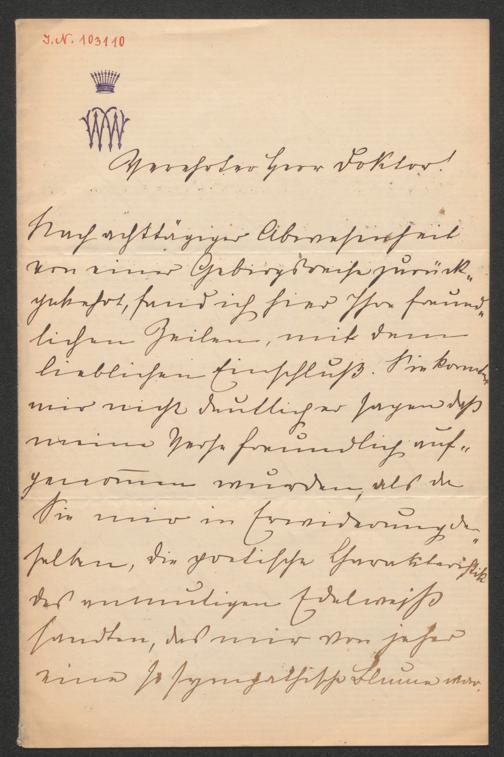 I.N. 103110
W
Verehrter Herr Doktor!
Nach achttägiger Abwesenheit
von einer Gebirgsreise zurück-
gekehrt, fand ich hier Ihre freund-
lichen Zeilen, mit dem
lieblichen Einschluß. Sie konnten
mir nicht deutlicher sagen daß
meine Verse freundlich auf-
genommen wurden, als da
Sie mir in Erwiderung der-
selben, die poetische Charakteristik
des anmutigen Edelweiß
sandten, das mir von jeher
eine so sympathische Blume war.